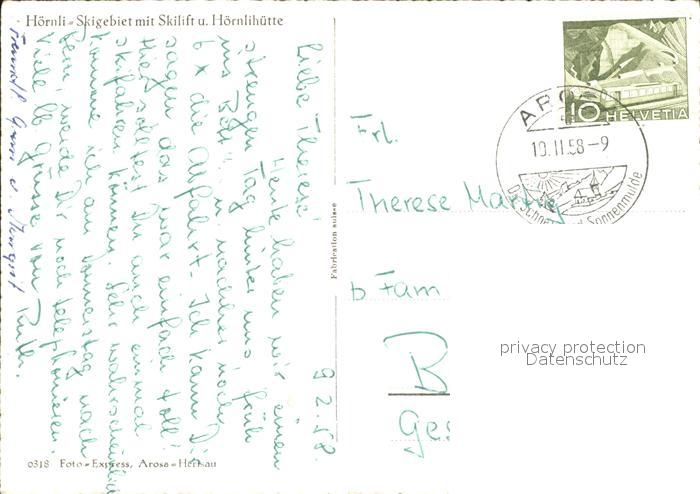 Hörnli-Skigebiet mit Skilift u. Hörnlihütte
9.2.58.
Liebe Therese!
Heute haben wir einen
strengen Tag hinter uns! früh
ins Bett u. nachher noch
6x die Abfahrt. Ich kann Dir
sagen das war einfach toll!
Hier solltest Du auch einmal
skifahren können. Sehr wahrscheinlich
komme ich am Donnerstag nach
Bern, werde Dir noch telephonieren.
Viele lb Grüsse von Ruth.
Gruss v. Margrit
Fabrication suisse
0318 Foto-Express, Arosa-Herisau
10 HELVETIA
AROSA
10.II.58-9
Sonnenmulde
Frl.
Therese
b Fam
B
Ges
privacy protection
Datenschutz